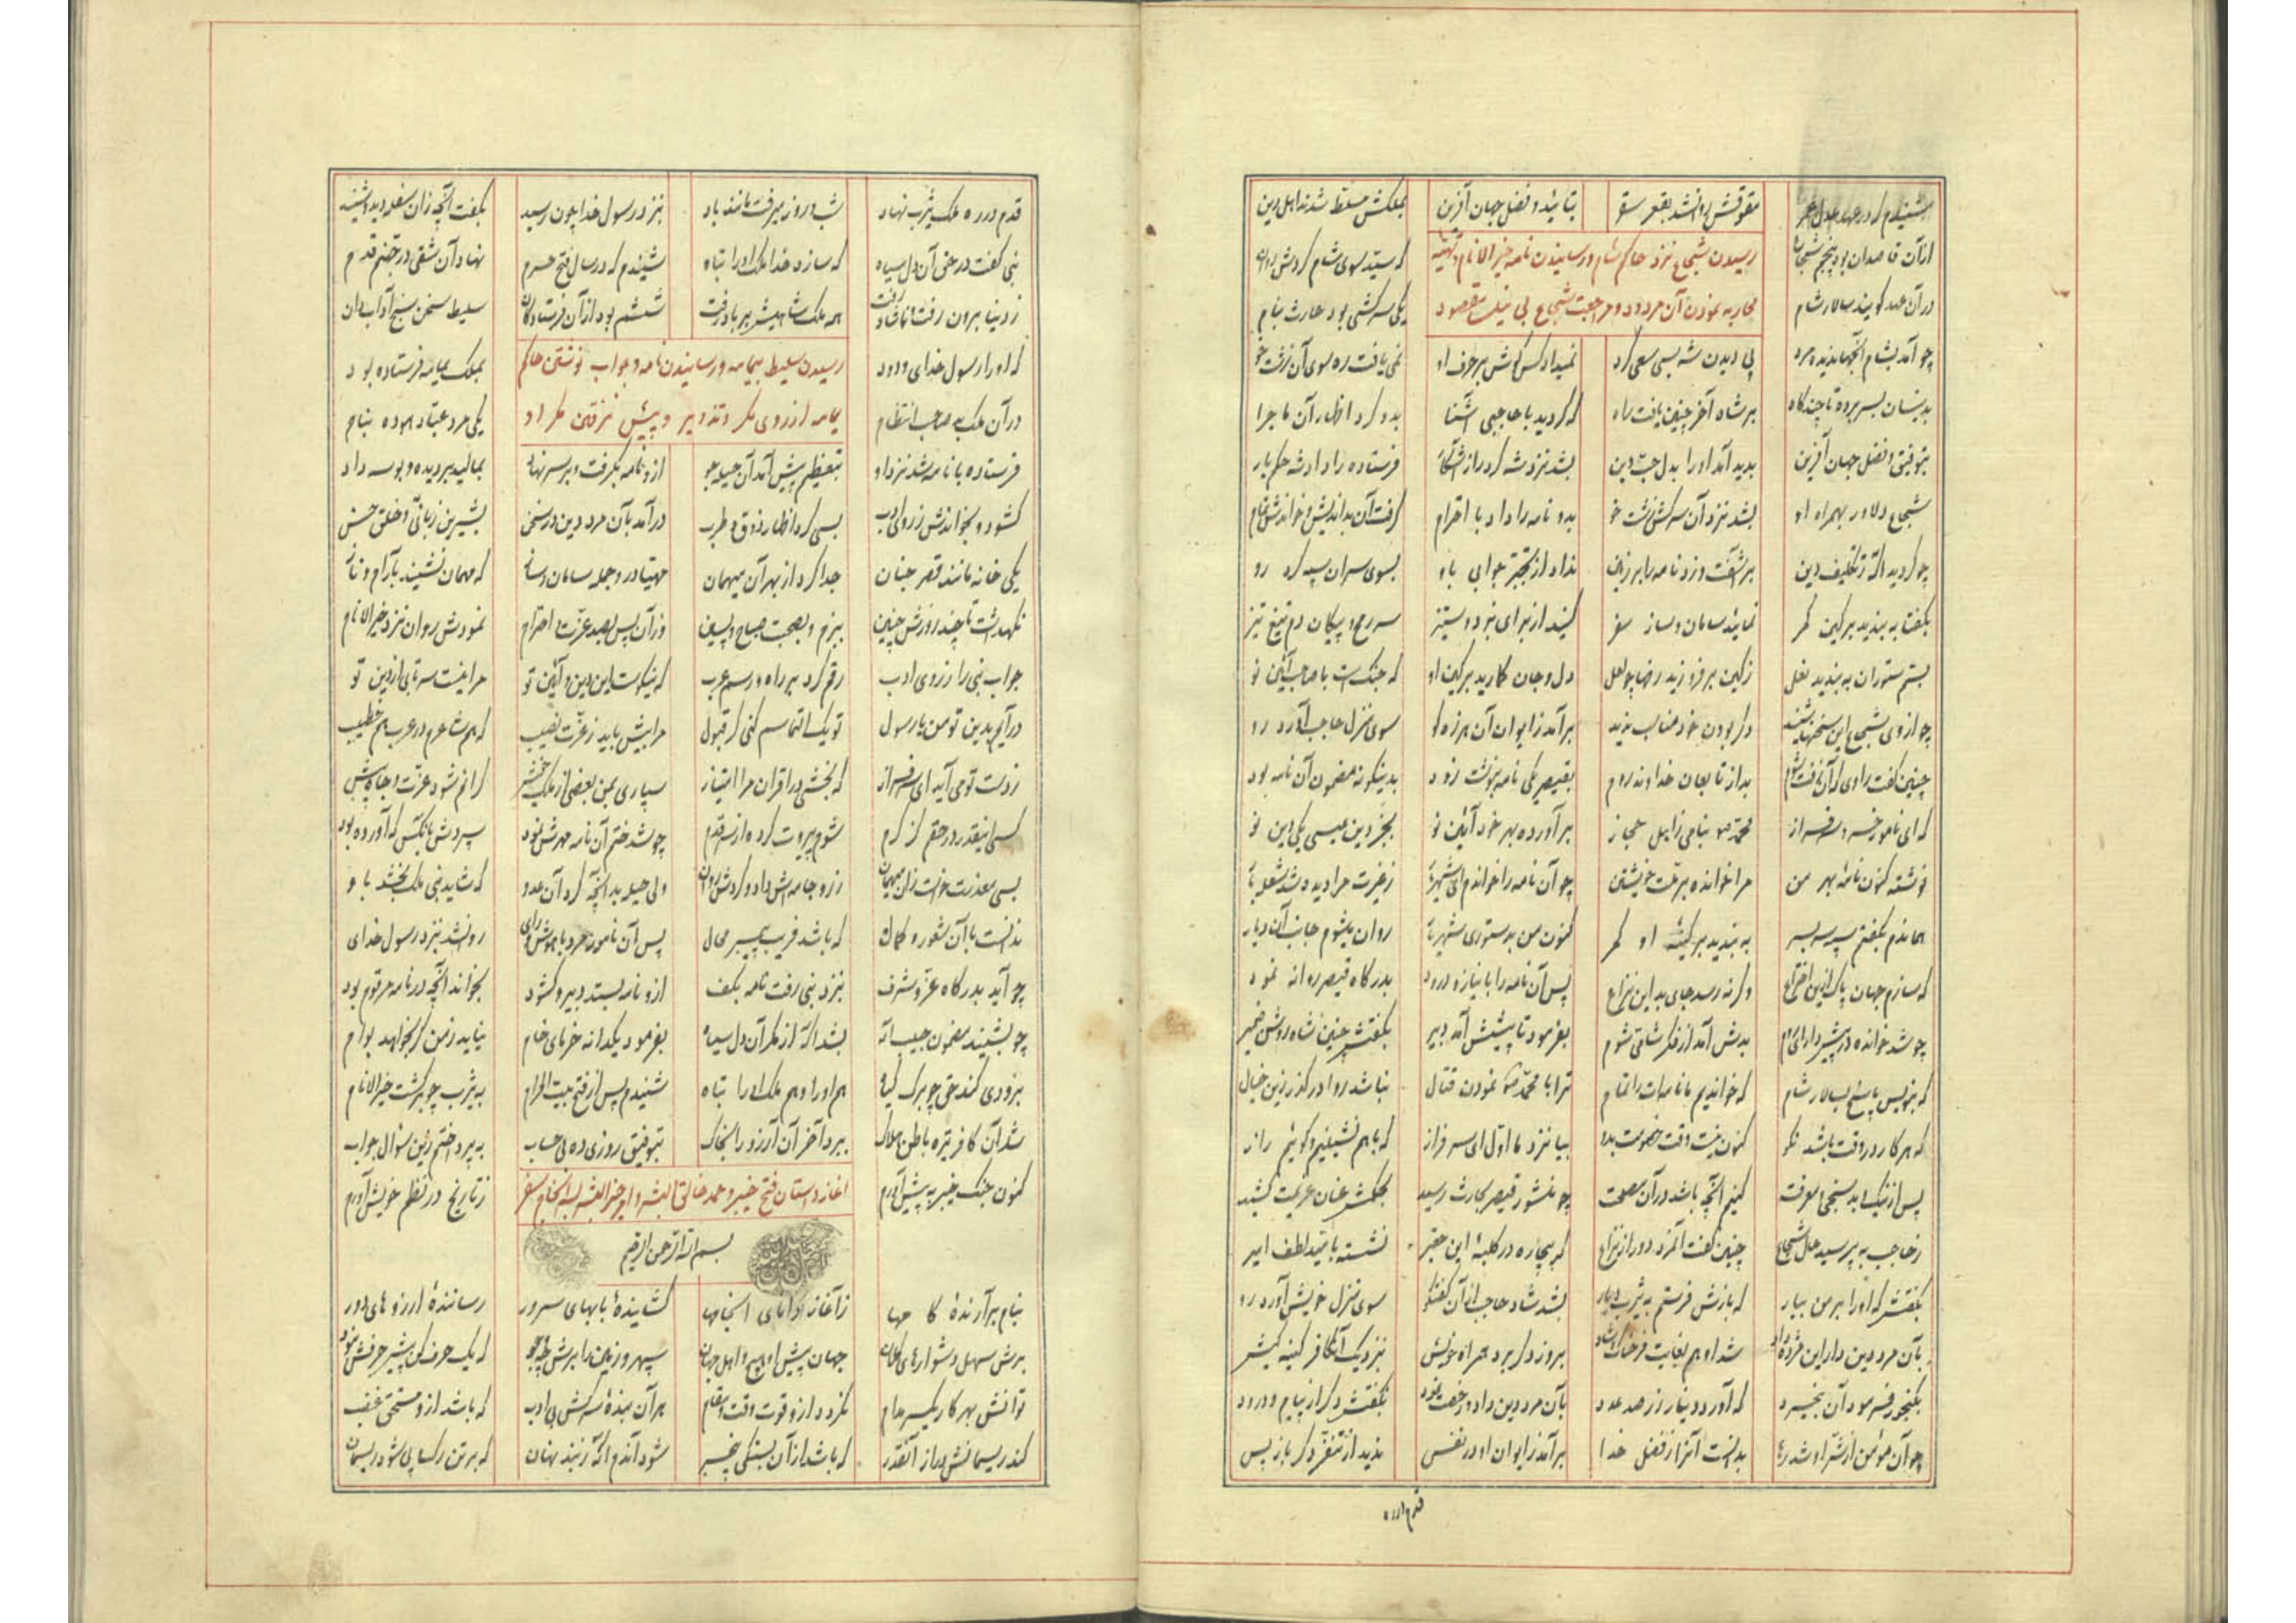 شنیدم که در عهد عدل عمر مقوقس روانشد بقعر سقر بتائید و فضل جهان آفرین بملکش مسلط شدند اهل دین
از آن قاصدان بود پنجم شجاع که سید سوی شام کردش
رسیدن شجاع نزد حاکم شام و رسانیدن نامه خیر الانام و تهیه
در آن عهد گویند سالار شام یکی سرکشی بود حارث بنام
محاربه نمودن آن مردود و مراجعت شجاع بی نیل مقصود
چو آمد بشام پی دیدن شه بسی سعی کرد نمیداد کس گوش بر حرف او نمی یافت ره سوی آن زشت خو
بدینسان بسر برد تا چندگاه بر شاه آخر چنین یافت راه که گردید با حاجبی آشنا بدو کرد اظهار آن ماجرا
بتوفیق و فضل جهان آفرین پدید آمد او را بدل حب دین بشد نزد شه فرستاده را داد شه حکم بار
شجاع دلاور بهمراه او بشد نزد آن سرکش زشت خو بدو نامه را داد با احترام گرفت آن بداندیش و خواندش تمام
چو گردید آگه ز تکلیف دین برآشفت و زد نامه را بر زمین نداد از تکبر جوابی باو بسوی سران سپه کرد رو
بگفتا به بندید بر کین کمر نمائید سامان و ساز سفر کنید از برای نبرد و ستیز سر رمح و پیکان دم تیغ تیز
بسم ستوران به بندید نعل ز کین برفروزید رخ چو لعل دل و جان گمارید بر کین او که جنگ است با صاحب آئین نو
چو از وی شجاع این سخنها شنید دگر بودن خود مناسب ندید برآمد ز ایوان آن هرزه گو سوی منزل حاجب آورد رو
چنین گفت راوی که آن شوم بد از تابعان خداوند روم بقیصر یکی نامه بنوشت زود بدینگونه مضمون آن نامه بود
که ای نامور خسرو سرفراز محمد بنامی ز اهل حجاز برآورده بهر خود آئین نو بجز دین عیسی یکی دین نو
نوشته کنون نامه بهر من مرا خوانده بر ملت خویشتن چو آن نامه را خواندم ای شهریار ز غیرت مرا دیده شد شعله بار
هماندم بگفتم سپه سر بسر به بندید بر کینه او کمر کنون من بدستوری شهریار روان میشوم جانب آن دیار
که سازم جهان پاک از این اختراع وگرنه رسد جای بد این نزاع پس آن نامه را با نیاز و درود بدرگاه قیصر روانه نمود
چو شد خوانده در پیش دارای روم بدش آمد از فکر شامی شوم بفرمود تا پیشش آمد دبیر بگفتش چنین شاه روشن ضمیر
که بنویس پاسخ بسالار شام که خواندیم ما نامه ات را تمام ترا با محمد نمودن قتال نباشد روا درگذر زین خیال
که هر کار در وقت باشد نکو کنون نیست وقت خصومت بدو بیا نزد ما اول ای سرفراز که باهم نشینیم و گوئیم راز
پس از نیک و بد سنجی معرفت کنیم آنچه باشد در آن مصلحت چو منشور قیصر بحارث رسید بحکمش عنان عزیمت کشید
ز حاجب به پرسید حال شجاع چنین گفت آنمرد دور از نزاع که بیچاره در کلبه این حقیر نشسته بامید لطف امیر
بگفتش که او را بر من بیار که بازش فرستم به یثرب دیار بشد شاد حاجب از آن گفتگو سوی منزل خویش آورد رو
بآن مرد دین دار این مژده داد شد او هم بغایت فرحناک و شاد بروز دگر برد همراه خویش بنزدیک آن کافر کینه کیش
بگنجور فرمود آن بیخرد که آورد دینار زر صد عدد بآن مرد دین داد و رخصت نمود بگفتش دگر از پیام و درود
چو آن مؤمن از شر او شد رها بدانست آنرا ز فضل خدا برآمد ز ایوان او در نفس ندید از تنفر دگر باز پس
قدم در ره
قدم در ره ملک یثرب نهاد شب و روز میرفت مانند باد بنزد رسول خدا چون رسید بگفت آنچه زان سفله دید و شنید
نبی گفت در حق آن دل سیاه که سازد خدا ملک او را تباه شنیدم که در سال فتح حرم نهاد آن شقی در جهنم قدم
ز دنیا برون رفت همه ملک شاهیش بر باد رفت ششم بود از آن فرستادگان سلیط سخن سنج آداب دان
که او را رسول خدای ودود بملک یمامه فرستاده بود
رسیدن سلیط بیمامه و رسانیدن نامه و جواب نوشتن حاکم
در آن ملک بد صاحب انتظام یکی مرد هوده بنام
یمامه از روی مکر و تذویر و پیش نرفتن مکر او
فرستاده با نامه شد نزد او بتعظیم پیش آمد آن حیله جو ازو نامه بگرفت و بر سر نهاد بمالید بر دیده و بوسه داد
گشود و بخواندش ز روی ادب بسی کرد اظهار ذوق و طرب درآمد بآن مرد دین در سخن بشیرین زبانی و خلق حسن
یکی خانه مانند قصر جنان جدا کرد از بهر آن میهمان مهیا در و جمله سامان که مهمان نشیند بآرام و ناز
نگهداشت تا چند روزش چنین ببزم و بصحبت صباح و پسین وز آن پس بصد عزت و احترام نمودش روان نزد خیر الانام
جواب نبی را ز روی ادب رقم کرد بر راه و رسم عرب که نیکوست این دین و آئین تو مرا نیست سرتابی از دین تو
درآیم بدین تو من یا رسول تو یک التماسم کنی گر قبول مرا بیش باید ز عزت نصیب که هم شاعرم در عرب هم خطیب
ز دست تو می آید ای سرفراز که بخشی در اقران مرا امتیاز سپاری بمن بعضی از ملک خویش کز آنم شود عزت و جاه بیش
کنی اینقدر در حقم گر کرم شوم پیروت کرده از سر قدم چو شد ختم آن نامه مهرش نمود سپردش بآنکس که آورده بود
بسی معذرت خواست زان میهمان زر و جامه اش داد و کردش روان ولی حیله بد آنچه کرد آن عدو که شاید نبی ملک بخشد باو
ندانست با آن شعور و کمال که باشد فریب پیمبر محال پس آن نامور مرد با هوش و رای روانشد بنزد رسول خدای
چو آمد بدرگاه عز و شرف بنزد نبی رفت نامه بکف ازو نامه بستد دبیر و گشود بخواند آنچه در نامه مرقوم بود
چو بشنید مضمون حبیب اله بشد آگه از مکر آن دل سیاه بفرمود یکدانه خرمای خام نیابد ز من گر بخواهد بوام
بزودی کند حق چو برگ گیاه هم او را و هم ملک او را تباه شنیدم پس از فتح بیت الحرام به یثرب چو برگشت خیر الانام
شد آن کافر تیره باطن هلاک ببرد آخر آن آرزو را بخاک بتوفیق روزی ده بی حساب به پرداختم زین سؤال جواب
کنون جنگ خیبر به پیش آورم ز تاریخ در نظم خویش آورم
آغاز داستان فتح خیبر و حمد خالق البشر
بسم الله الرحمن الرحیم
بنام برآرنده کامها ز آغاز دانای انجامها گشاینده بابهای سرور رساننده آرزوهای دور
برش سهل دشوارهای جهان پیش او هیچ و اهل جهان سپهر و زمین را برش که یک حرف
توانش بهر کار یکسر مدام نگردد ازو فوت وقت هر آن بنده سرکش بی ادب که باشد ازو مستحق غضب
کند ریسمانش دراز آنقدر که باشد از آن بستگی بیخبر شود آندم آگه ز بند نهان که بر تن رگ